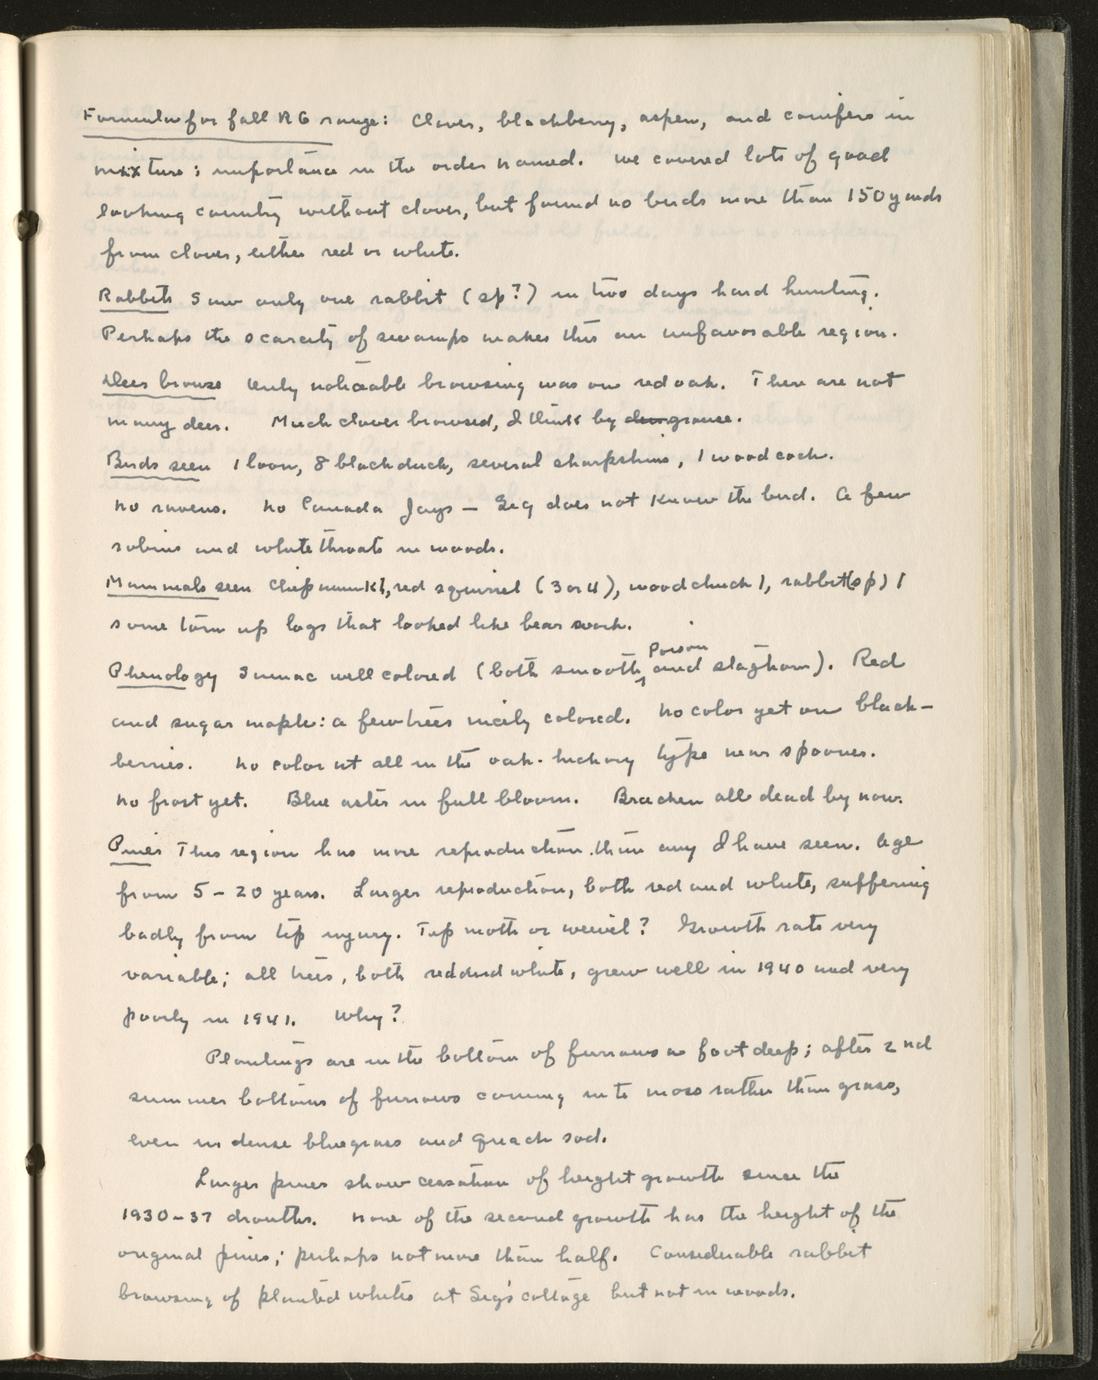 Formula for fall RG range: Clover, blackberry, aspen, and conifers in
mixture; importance in the order named. We covered lots of good
looking country without clover, but found no birds more than 150 yards
from clover, either red or white.
Rabbits Saw only one rabbit (sp?) in two days hard hunting.
Perhaps the scarcity of swamps makes this an unfavorable region.
Deer browse Only noticeable browsing was on red oak. There are not
many deer. Much clover browsed, I think by deer grouse.
Birds seen 1 loon, 8 black duck, several sharpshins, 1 woodcock.
No ravens. No Canada Jays – Sig does not know the bird. A few
robins and whitethroats in woods.
Mammals seen Chipmunk 1, red squirrel (3 or 4), woodchuck 1, rabbit (sp) 1
some torn up logs that looked like bear work.
Poison
Phenology Sumac well colored (both smooth, and staghorn). Red
and sugar maple: a few trees nicely colored. No color yet on black-
berries. No color at all in the oak-hickory type near spooner.
No frost yet. Blue aster in full bloom. Bracken all dead by now.
Pines This region has more reproduction than any I have seen. Age
from 5-20 years. Larger reproduction, both red and white, suffering
badly from tip injury. Tip moth or weevil? Growth rate very
variable; all trees, both red and white, grew well in 1940 and very
poorly in 1941. Why?
Plantings are in the bottom of furrows a foot deep; after 2nd
summer bottoms of furrows coming in to moss rather than grass,
even in dense bluegrass and quack sod.
Larger pines show cessation of height growth since the
1930-37 drouths. None of the second growth has the height of the
original pines; perhaps not more than half. Considerable rabbit
browsing of planted whites at Sig's cottage but not in woods.